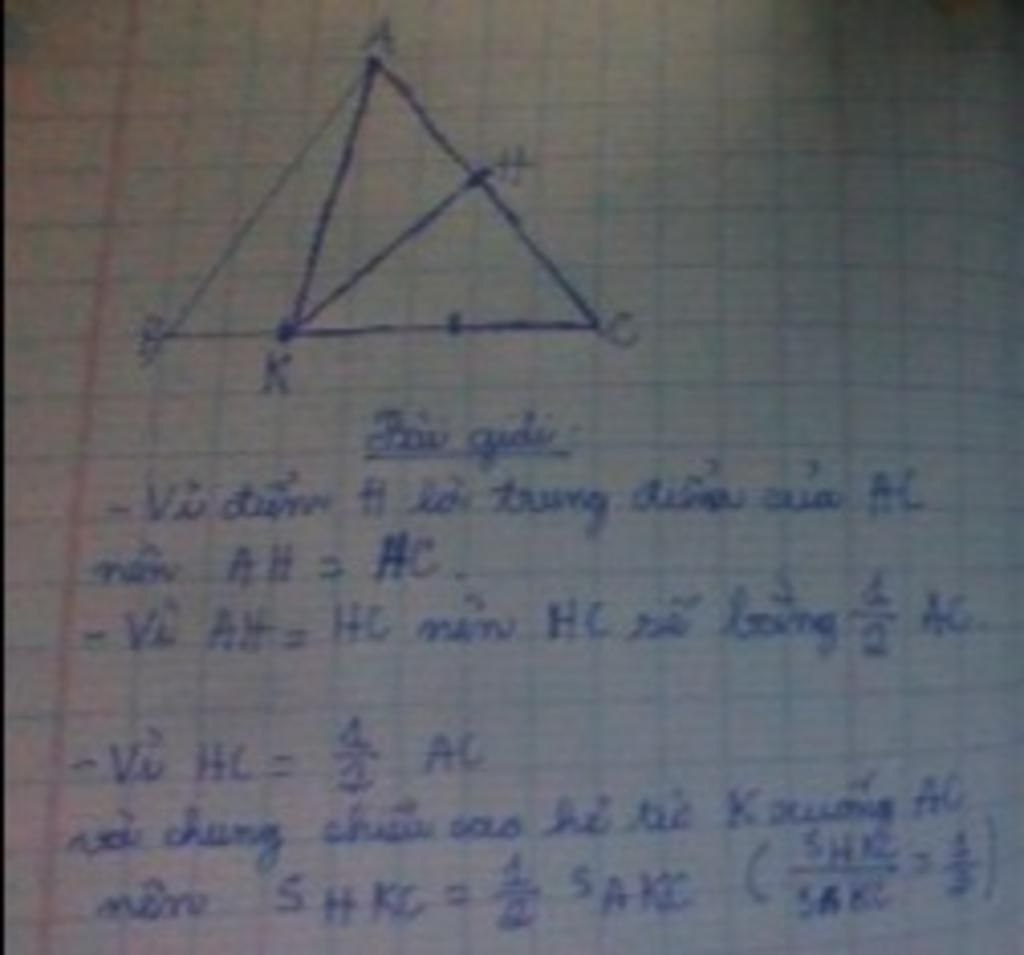 A
H
B
K
C
Bài giải:
- Vì điểm H là trung điểm của AC
nên AH = HC.
- Vì AH = HC nên HC sẽ bằng 1/2 AC.
- Vì HC = 1/2 AC
và chung chiều cao kẻ từ K xuống AC
nên S HKC = 1/2 S AKC ( S HKC / S AKC = 1/2 )